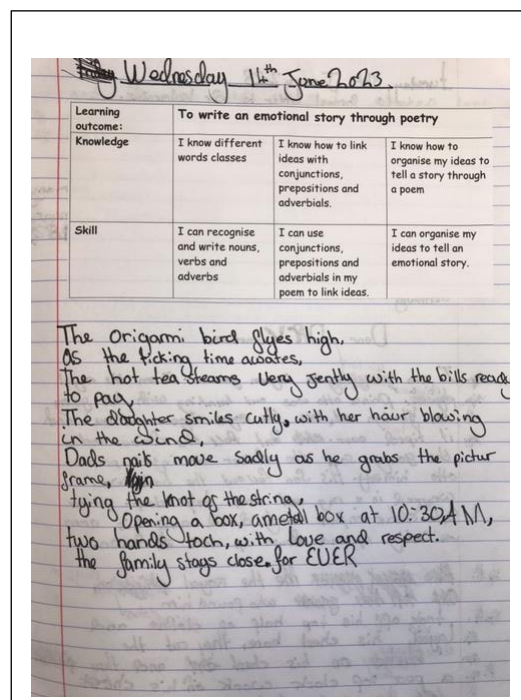 Wednesday 14th June 2023.
Learning outcome: To write an emotional story through poetry
Knowledge
I know different words classes
I know how to link ideas with conjunctions, prepositions and adverbials.
I know how to organise my ideas to tell a story through a poem
Skill
I can recognise and write nouns, verbs and adverbs
I can use conjunctions, prepositions and adverbials in my poem to link ideas.
I can organise my ideas to tell an emotional story.
The origami bird flyes high,
as the ticking time awates,
The hot tea steams very jently with the bills ready
to pay,
The daughter smiles cutly, with her hair blowing
in the wind,
Dads move sadly as he grabs the pictur
frame,
tying the knot of the string,
Opening a box, a metal box at 10:30AM,
two hands toch, with love and respect.
the family stays close. for EVER